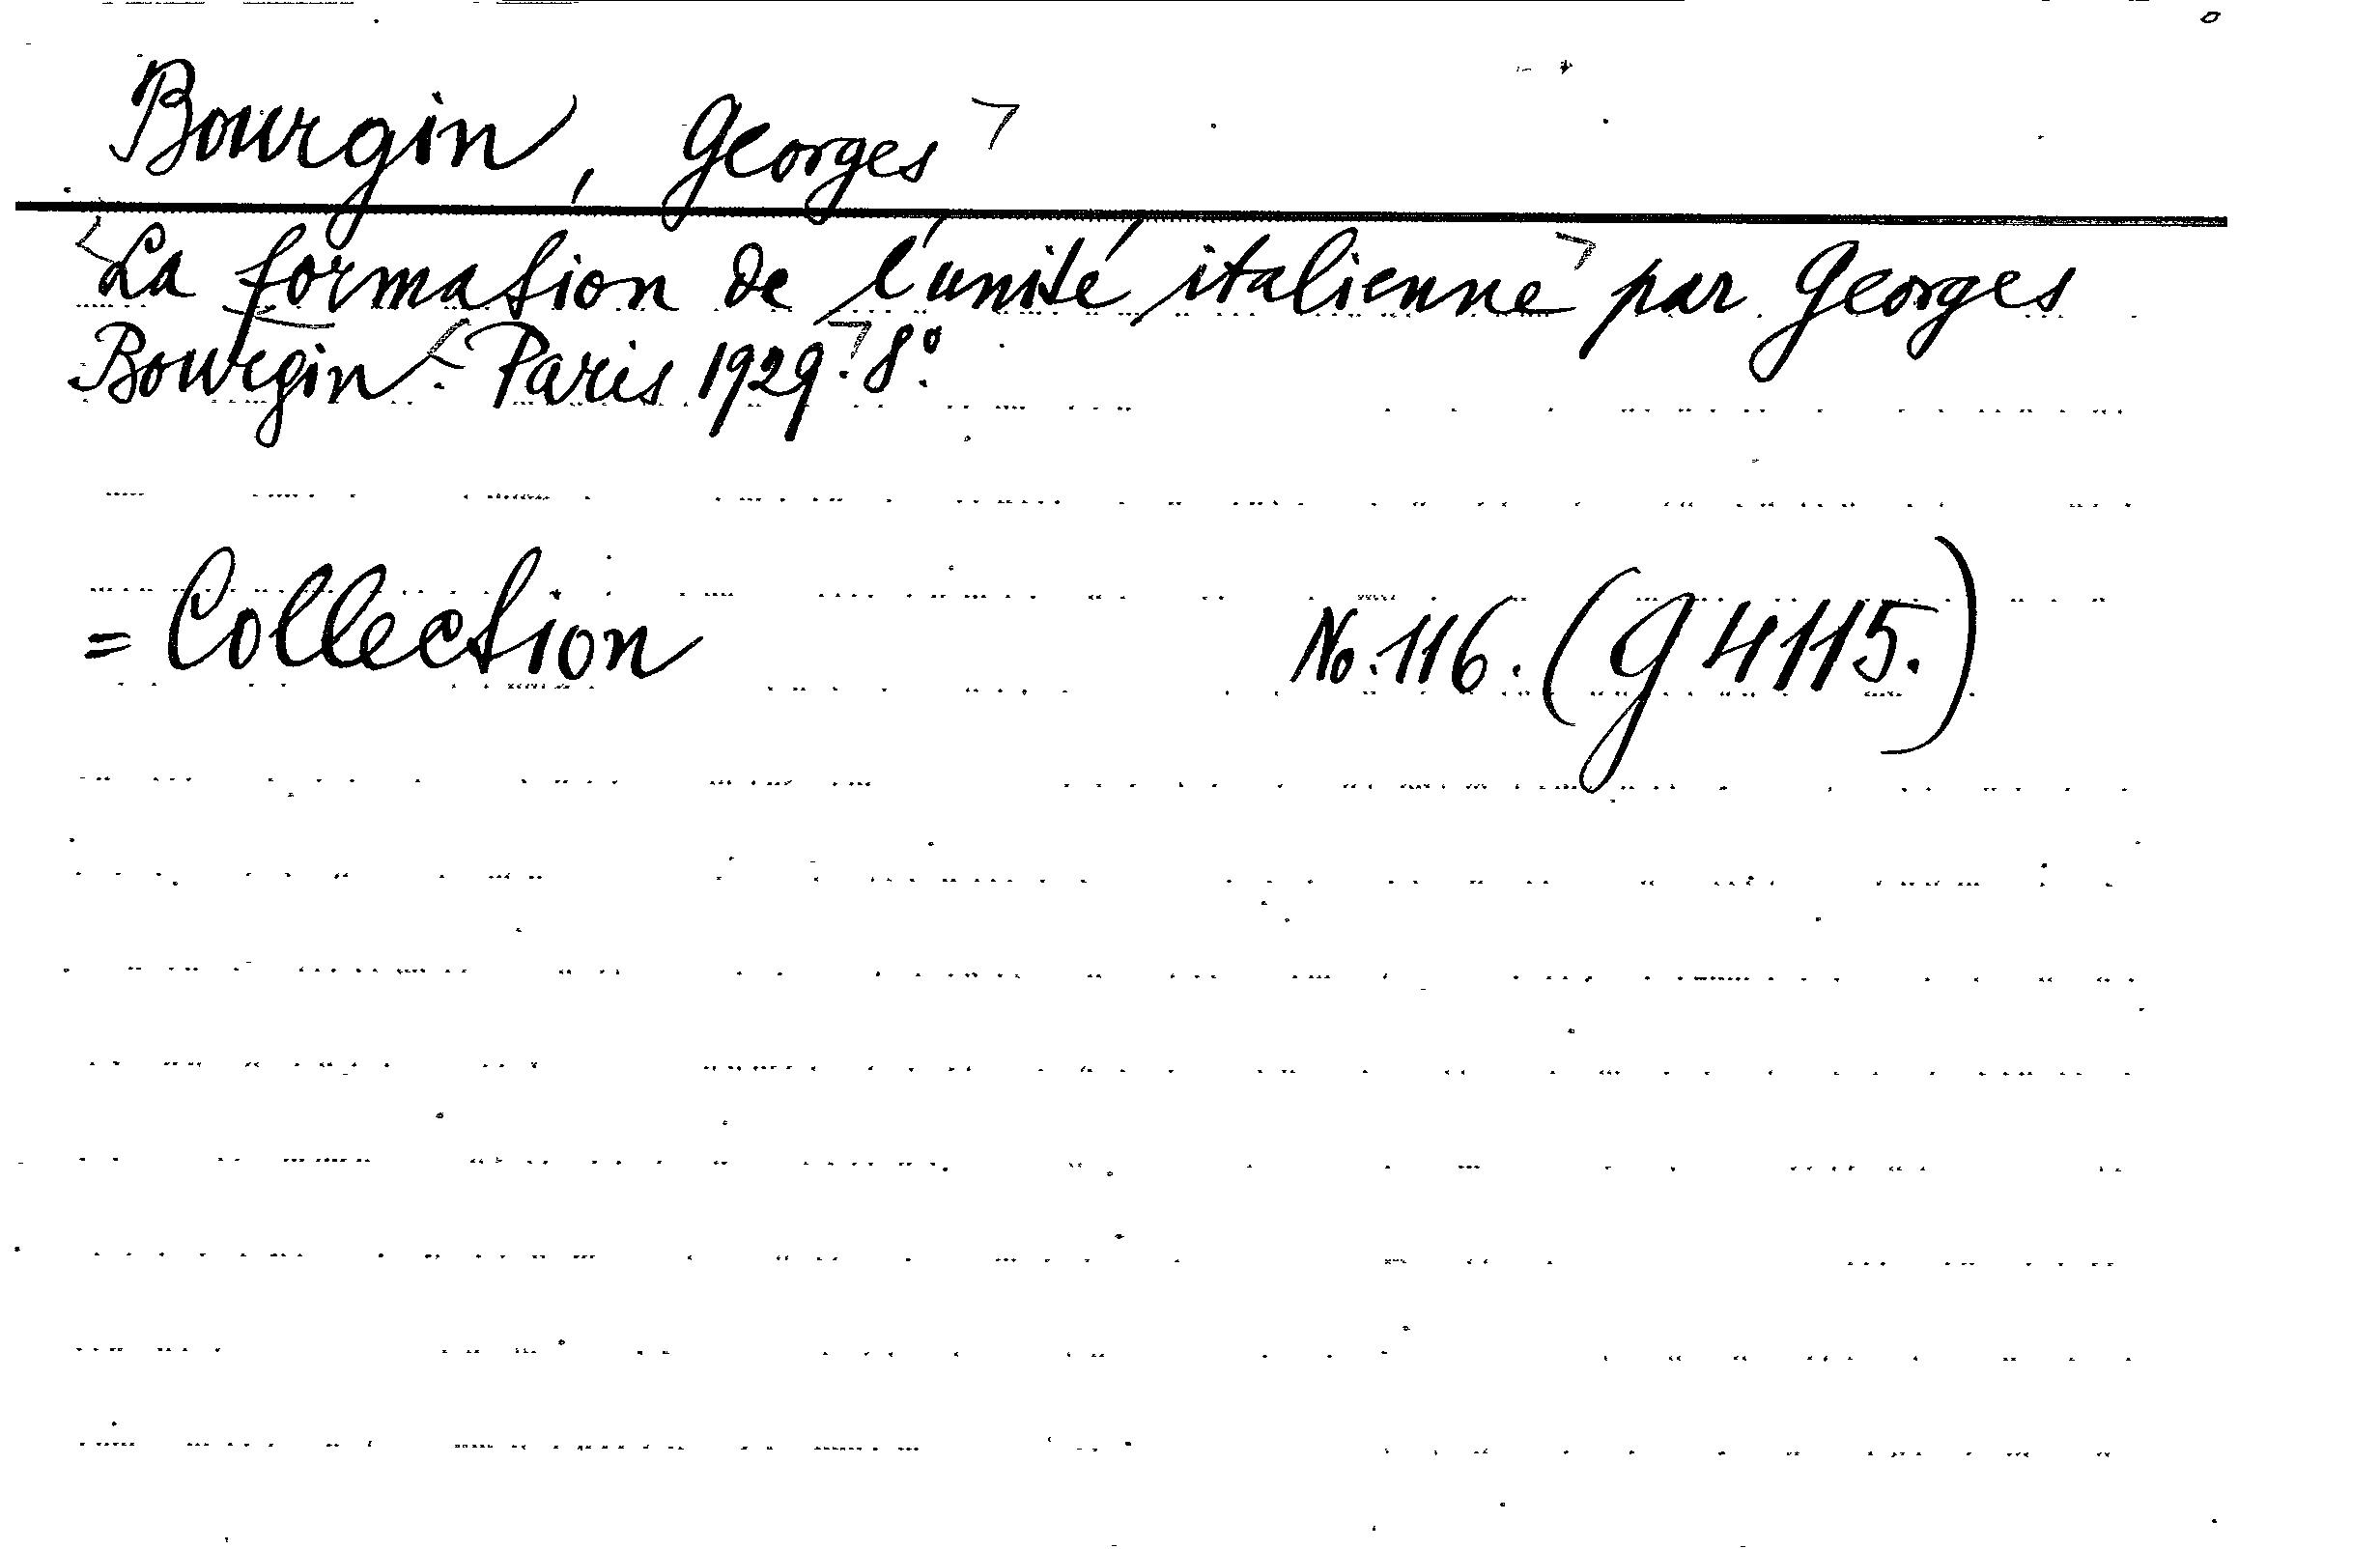 Bourgin, Georges
La formation de l'unité italienne par Georges
Bourgin. Paris 1929. 8°.
= Collection No. 116. (G 4115.)